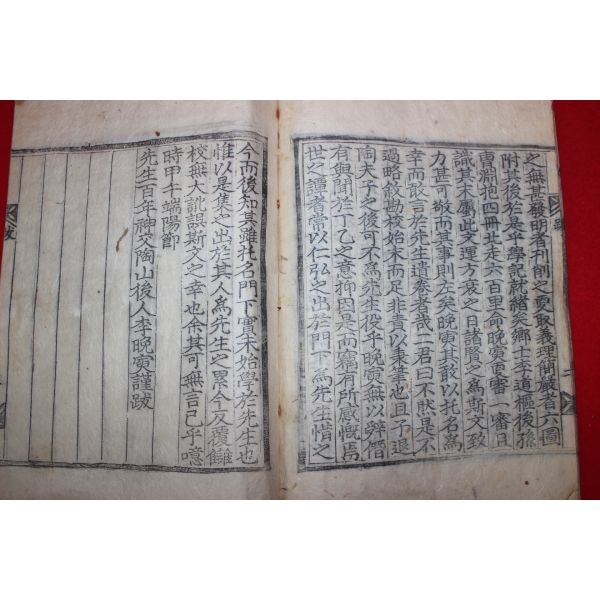 之無甚發明者刊削之更取義理簡嚴者六圖
附其後於是乎學記就緒矣鄉士李道樞後孫
曺潤抱四冊北走六百里命晩寅更審一審曰
識其末屬此文運方衰之日諸賢之爲斯文致
力甚可敬而其事則左矣晩寅其敢以托名爲
幸而敢言於先生遺泰者哉二君曰不然是不
過略敘勘校始末而足非責以秉筆也且子退
陶夫子之後可不爲先生役乎晩寅無以辭僭
有與聞於丁乙之意抑因是而竊有所感慨焉
世之讀者常以仁弘之出於門下爲先生惜之
今而後知其雖托名門下實未始學者先生也
惟以是集之出於其人爲先生之累今反覆讎
校無大訛誤斯文之幸也余其可無言己乎噫
時甲午端陽節
先生百年神交陶山後人李晩寅謹跋
跋